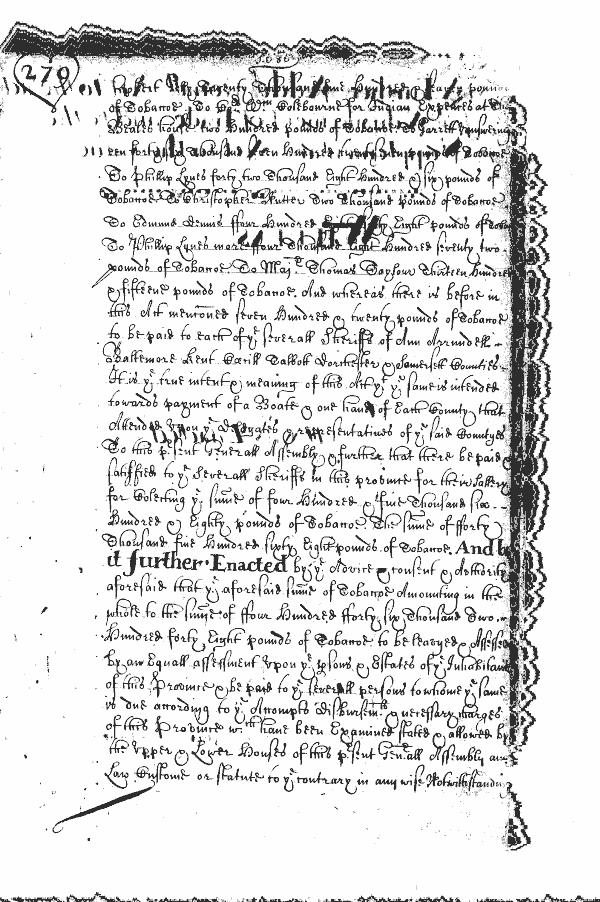 270
1686
Robert Twenty Thousand Hundred & Forty pounds
of Tobaccoe. To Wm Coleborne for Indian Expences at
Beales house two Hundred pounds of Tobaccoe. To Jarrett Vansweringen
forty Thousand Seven Hundred twenty pounds of Tobaccoe
To Phillip Lynes forty two Thousand Eight Hundred & six pounds of
Tobaccoe. To Christopher Rutter Two Thousand pounds of Tobaccoe
To Edmund Dennis ffour Hundred Eight pounds of Tobaccoe
To Phillip Lynes more ffour Thousand Eight Hundred seventy two
pounds of Tobaccoe. To Majr. Thomas Taylour Thirteen Hundred
& fifteene pounds of Tobaccoe. And whereas there is before in
this Act menconed seven Hundred & twenty pounds of Tobaccoe
to be paid to each of ye severall Sheriffs of Ann Arrundell
Baltemore Kent Cecill Talbott Dorchester & Somersett Counties
It is ye true intent & meaning of this Act yt ye same is intended
towards payment of a Boate & one hand of Each County that
Attended upon ye Delegates & representatives of ye said Countyes
To this p'sent Generall Assembly & further that there be paid &
satisfied to ye severall Sheriffs in this province for their Sallery
for Colecting ye sume of four Hundred & five Thousand six
Hundred & Eighty pounds of Tobaccoe. The sume of fforty
Thousand five Hundred sixty Eight pounds of Tobaccoe. And be
it further Enacted by ye Advice & consent & Authority
aforesaid that ye aforesaid sume of Tobaccoe Amounting in the
whole to the sume of ffour Hundred fforty six Thousand Two
Hundred forty Eight pounds of Tobaccoe to be leavyed & Assessed
by an Equall assessment upon ye psons & Estates of ye Inhabitants
of this Province & be paid to ye severall persons to whome ye same
is due according to ye Accompts disbursemts & necessary charges
of this Province wch. have been Examined stated & allowed by
the Upper & Lower Houses of this p'sent Genall Assembly any
Law Custome or statute to ye contrary in any wise Notwithstanding